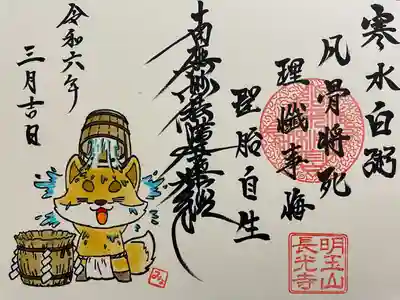 寒水白粥
凡骨將死
理懺事悔
聖胎自生
南無妙法蓮華経
令和六年
三月吉日
明王山
長光寺